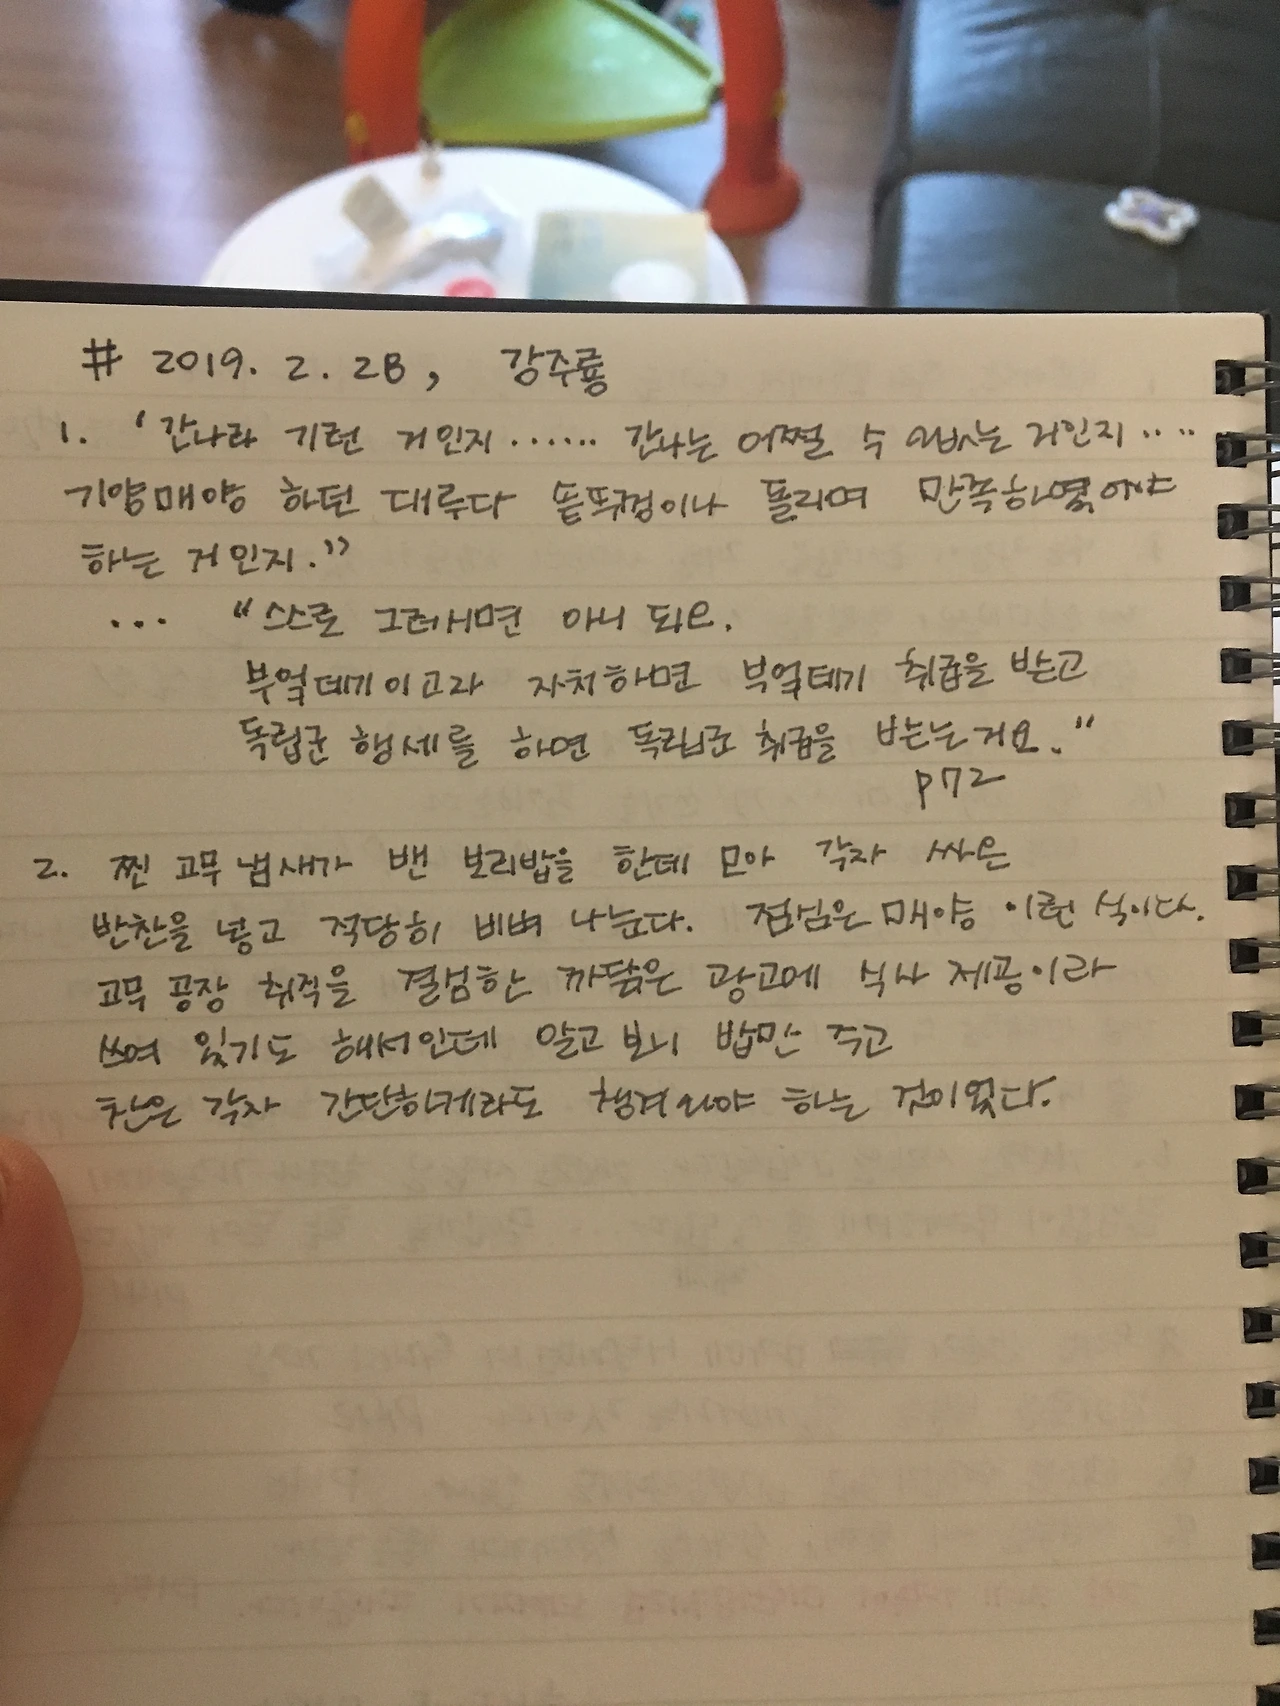 # 2019. 2. 28, 강주룡
1. ‘간나라 기런 거인지...... 간나는 어쩔 수 없는 거인지....
기양매양 하던 대루다 솥뚜껑이나 돌리며 만족하였어야
하는 거인지.”
... “스스로 그러시면 아니 되오.
부엌데기이고라 자처하면 부엌데기 취급을 받고
독립군 행세를 하면 독립군 취급을 받는 거요.“
p72
2. 찐 고무 냄새가 밴 보리밥을 한데 모아 각자 싸온
반찬을 넣고 적당히 비벼 나눈다. 점심은 매양 이런 식이다.
고무 공장 취직을 결심한 까닭은 광고에 식사 제공이라
쓰여 있기도 해서인데 알고 보니 밥만 주고
찬은 각자 간단하게라도 챙겨와야 하는 것이었다.